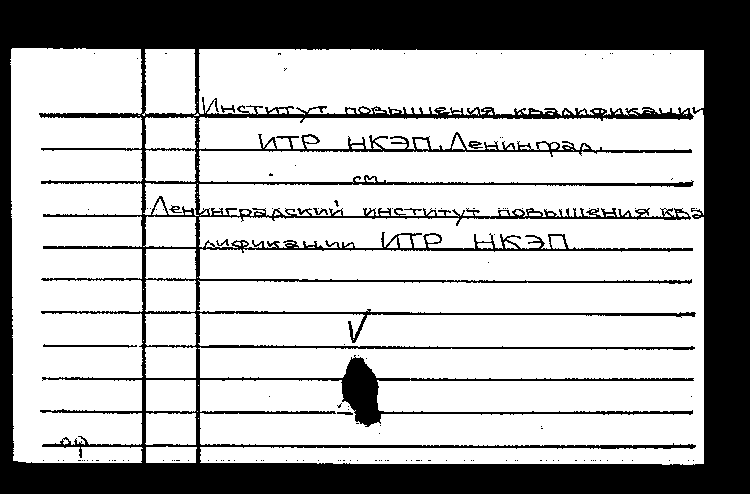 Институт повышения квалификации
ИТР НКЭП. Ленинград.
см.
Ленинградский институт повышения ква
лификации ИТР НКЭП